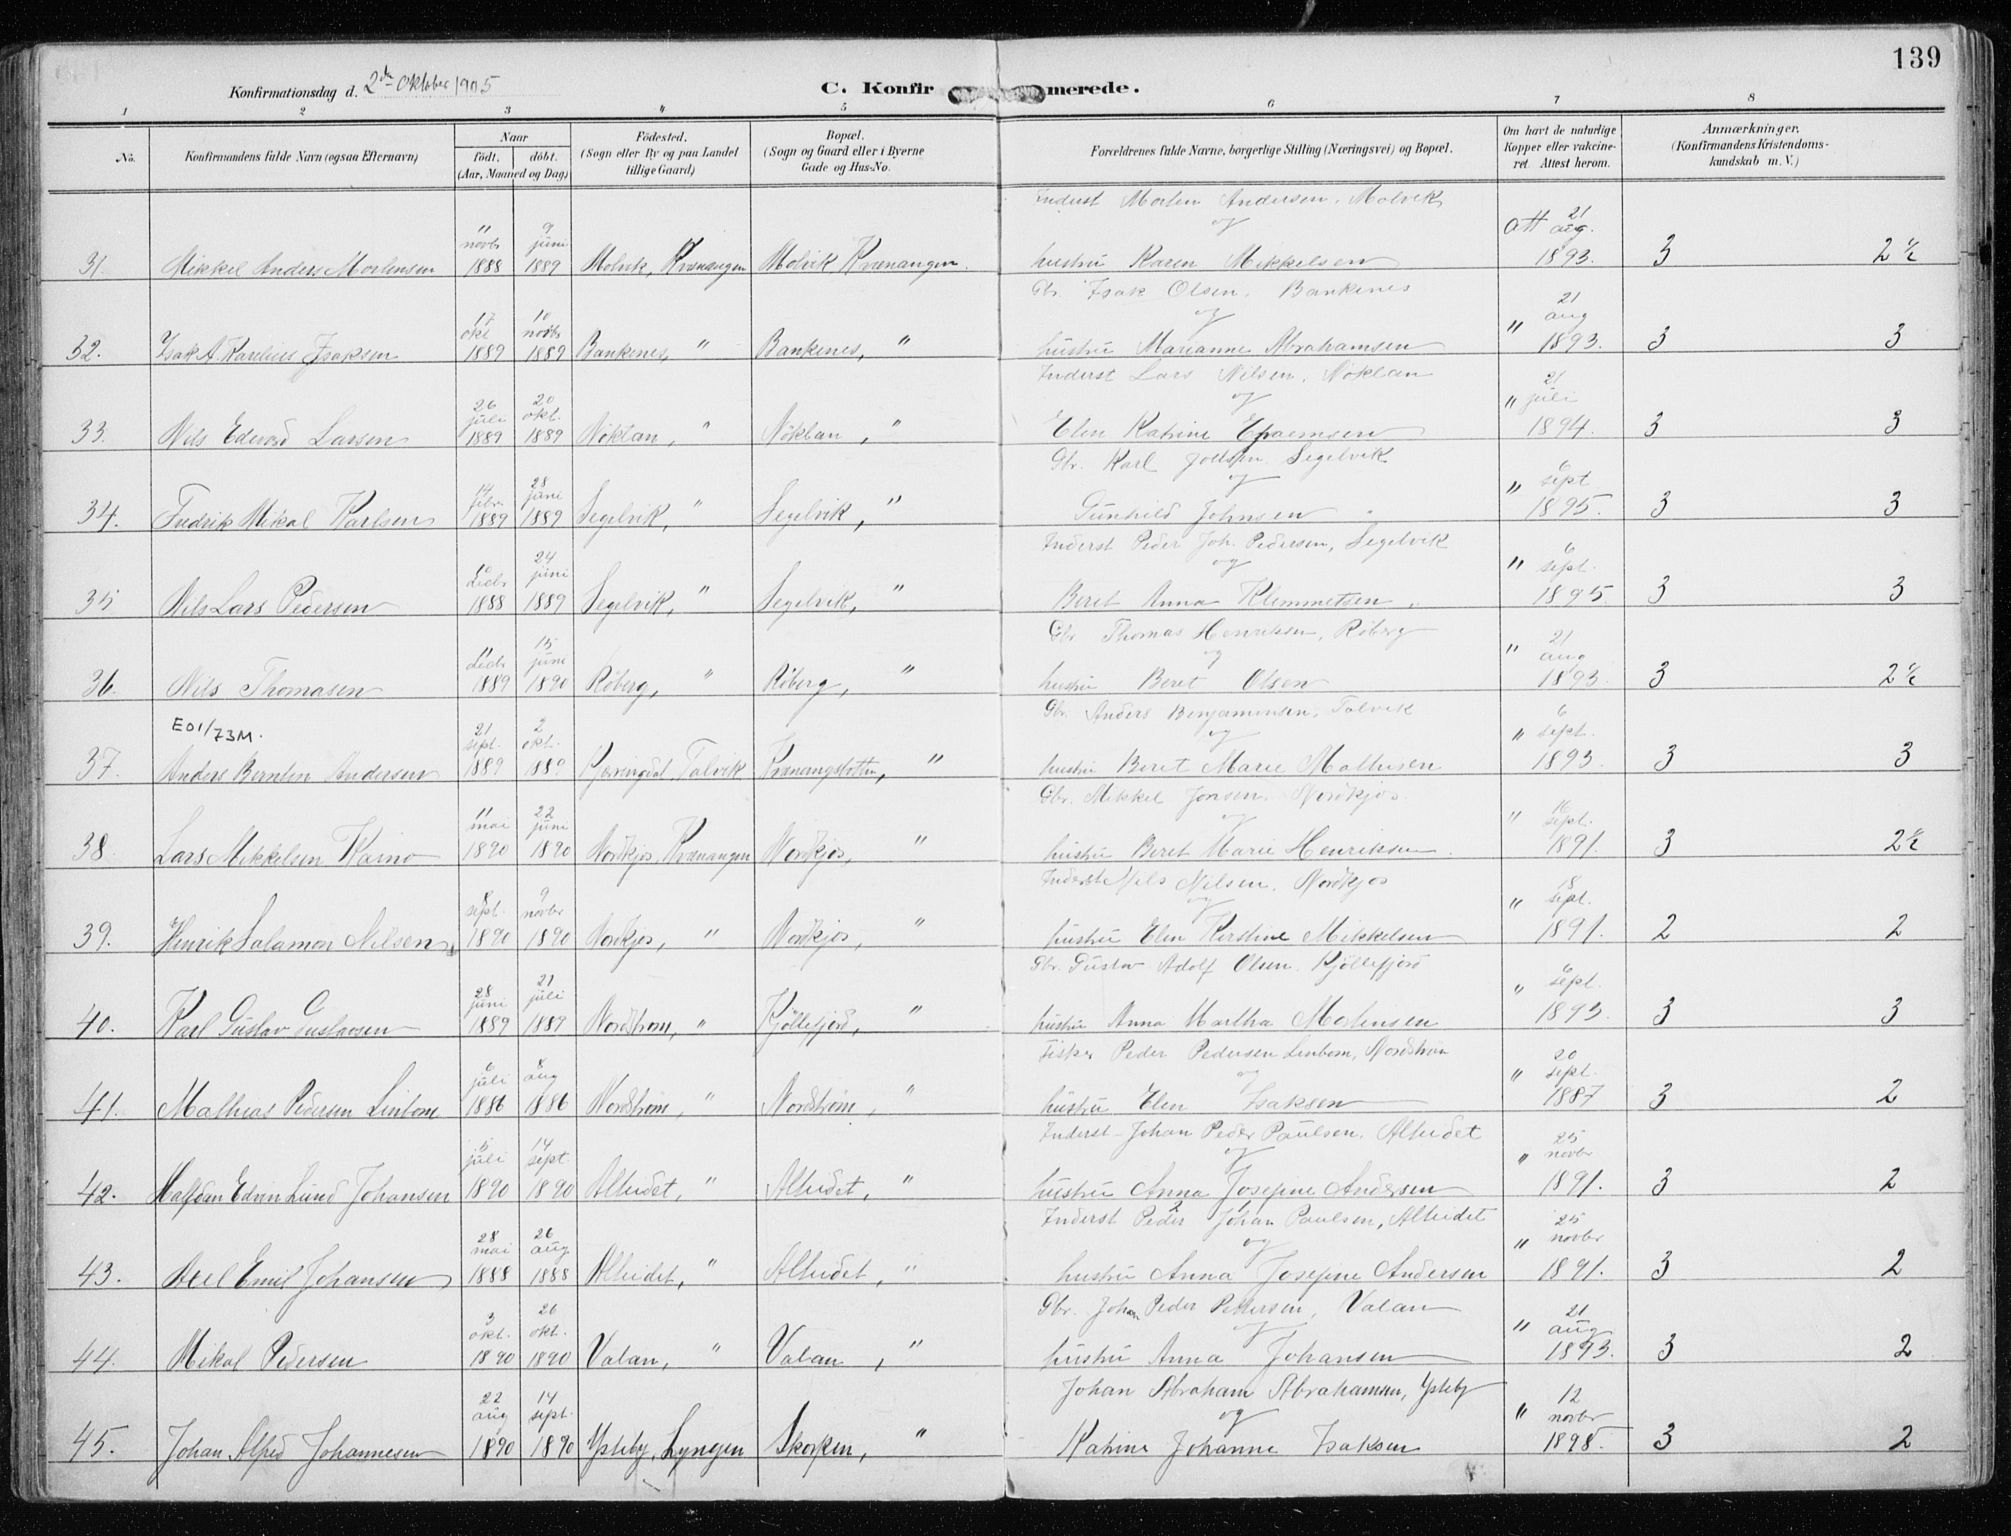 139
Konfirmationsdag d. 2den Oktober 1905
C. Konfirmerede.
1 2 3 4 5 6 7 8
No. Konfirmandens fulde Navn (ogsaa Efternavn)
Naar
født. døbt.
(Aar, Maaned og Dag)
Födested.
(Sogn eller By og paa Landet
tillige Gaard)
Bopæl.
(Sogn og Gaard eller i Byerne
Gade og Hus-No.
Forældrenes fulde Navne, borgerlige Stilling (Næringsvei) og Bopæl.
Om havt de naturlige
Kopper eller vakcine-
ret Attest herom.
Anmærkninger.
(Konfirmandens Kristendoms-
kundskab m. V.)
Inderst Morten Andersen, Molvik
og
31. Mikkel Anders Mortensen 11 novbr 1888 9 juni 1889 Molvik, Kvænangen Molvik Kvænangen. hustru Karen Mikkelsen att 21 aug. 1893. 3 2½
Gbr. Isak Olsen, Bankenes
og
32. Isak A. Karelius Isaksen 17 okt 1889 10 novbr 1889 Bankenes, " Bankenes, " hustru Marianne Abrahamsen " 21 aug 1893. 3 3
Inderst Lars Nilsen, Nöklan
og
33. Nils Edevard Larsen 26 juli 1889 20 okt. 1889 Nöklan, " Nöklan, " Elen Katrine Efraemsen " 21 juli 1894. 3 3
Gbr. Karl Joelsen Segelvik
og
34. Fredrik Mikal Karlsen 14 febr. 1889 28 juni 1889 Segelvik, " Segelvik, " Gunhild Johnsen " 6 sept 1895. 3 3
Inderst Peder Joh. Pedersen, Segelvik
og
35 Nils Lars Pedersen decbr 1888 24 juni 1889 Segelvik, " Segelvik, " Beret Anna Klemmetsen " 6 sept. 1895. 3 3
Gbr Thomas Henriksen, Röberg
og
36. Nils Thomasen 11 decbr 1889 15 juni 1890 Röberg, " Röberg, " hustru Beret Olsen " 21 aug 1893. 3 2½
E01/73M.
Gbr. Anders Benjaminsen, Talvik
og
37. Anders Berntin Andersen 21 sept. 1889 2 okt. 1889 Kjerringdal Talvik Kvænangsbotten, " hustru Beret Marie Mathisen " 6 sept. 1893. 3 3
Gbr. Mikkel Jonsen, Nordkjos.
og
38. Lars Mikkelsen Kaino 11 mai 1890 22 juni 1890 Nordkjos, Kvænangen Nordkjos, " hustru Beret Marie Henriksen " 16 sept. 1891. 3 2½
Inderst Nils Nilsen, Nordkjos
og
39. Henrik Salamon Nilsen 8 sept. 1890 9 novbr 1890 Nordkjos, " Nordkjos, " hustru Elen Kirstine Mikkelsen " 18 sept. 1891. 2 2
Gbr. Gustav Adolf Olsen, Kjöllefjord
40. Karl Gustav Gustavsen 28 juni 1889 21 juli 1889 Nordstrøm, " Kjöllefjord, " hustru Anna Martha Mortensen " 6 sept. 1893. 3 3
Fisker Peder Pedersen Linbom, Nordstrøm
og
41. Mathias Pedersen Linbom 6 juli 1886 8 aug 1886 Nordstrøm, " Nordstrøm, " hustru Elen Isaksen " 20 sept. 1887 3 2
Inderst Johan Peder Paulsen, Alteidet
og
42. Halfdan Edvin Lund Johansen 5 juli 1890 14 sept. 1890 Alteidet, " Alteidet, " hustru Anna Josefine Andersen " 25 novbr 1891. 3 2
Inderst Peder Johan Paulsen, Alteidet
og
43. Axel Emil Johansen 28 mai 1888 26 aug 1888 Alteidet, " Alteidet, " hustru Anna Josefine Andersen " 25 novbr 1891. 3 2
Gbr. Johan Peder Pettersen, Valan
og
44. Mikal Pedersen 3 okt. 1890 26 okt. 1890 Valan, " Valan, " hustru Anna Johansen " 21 aug 1893. 3 2
Johan Abraham Abrahamsen, Ysteby
og
45. Johan Alfred Johannesen 22 aug 1890 14 sept. 1890 Ysteby, Lyngen Skorpen, " Katrine Johanne Isaksen " 12 novbr 1898. 3 2